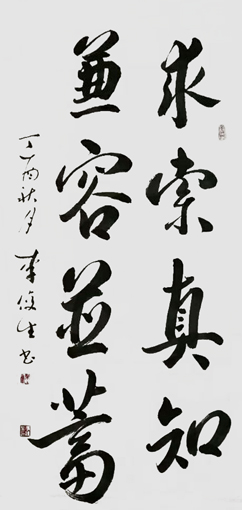 求索真知
兼容並蓄
丁酉秋月 李俊生书